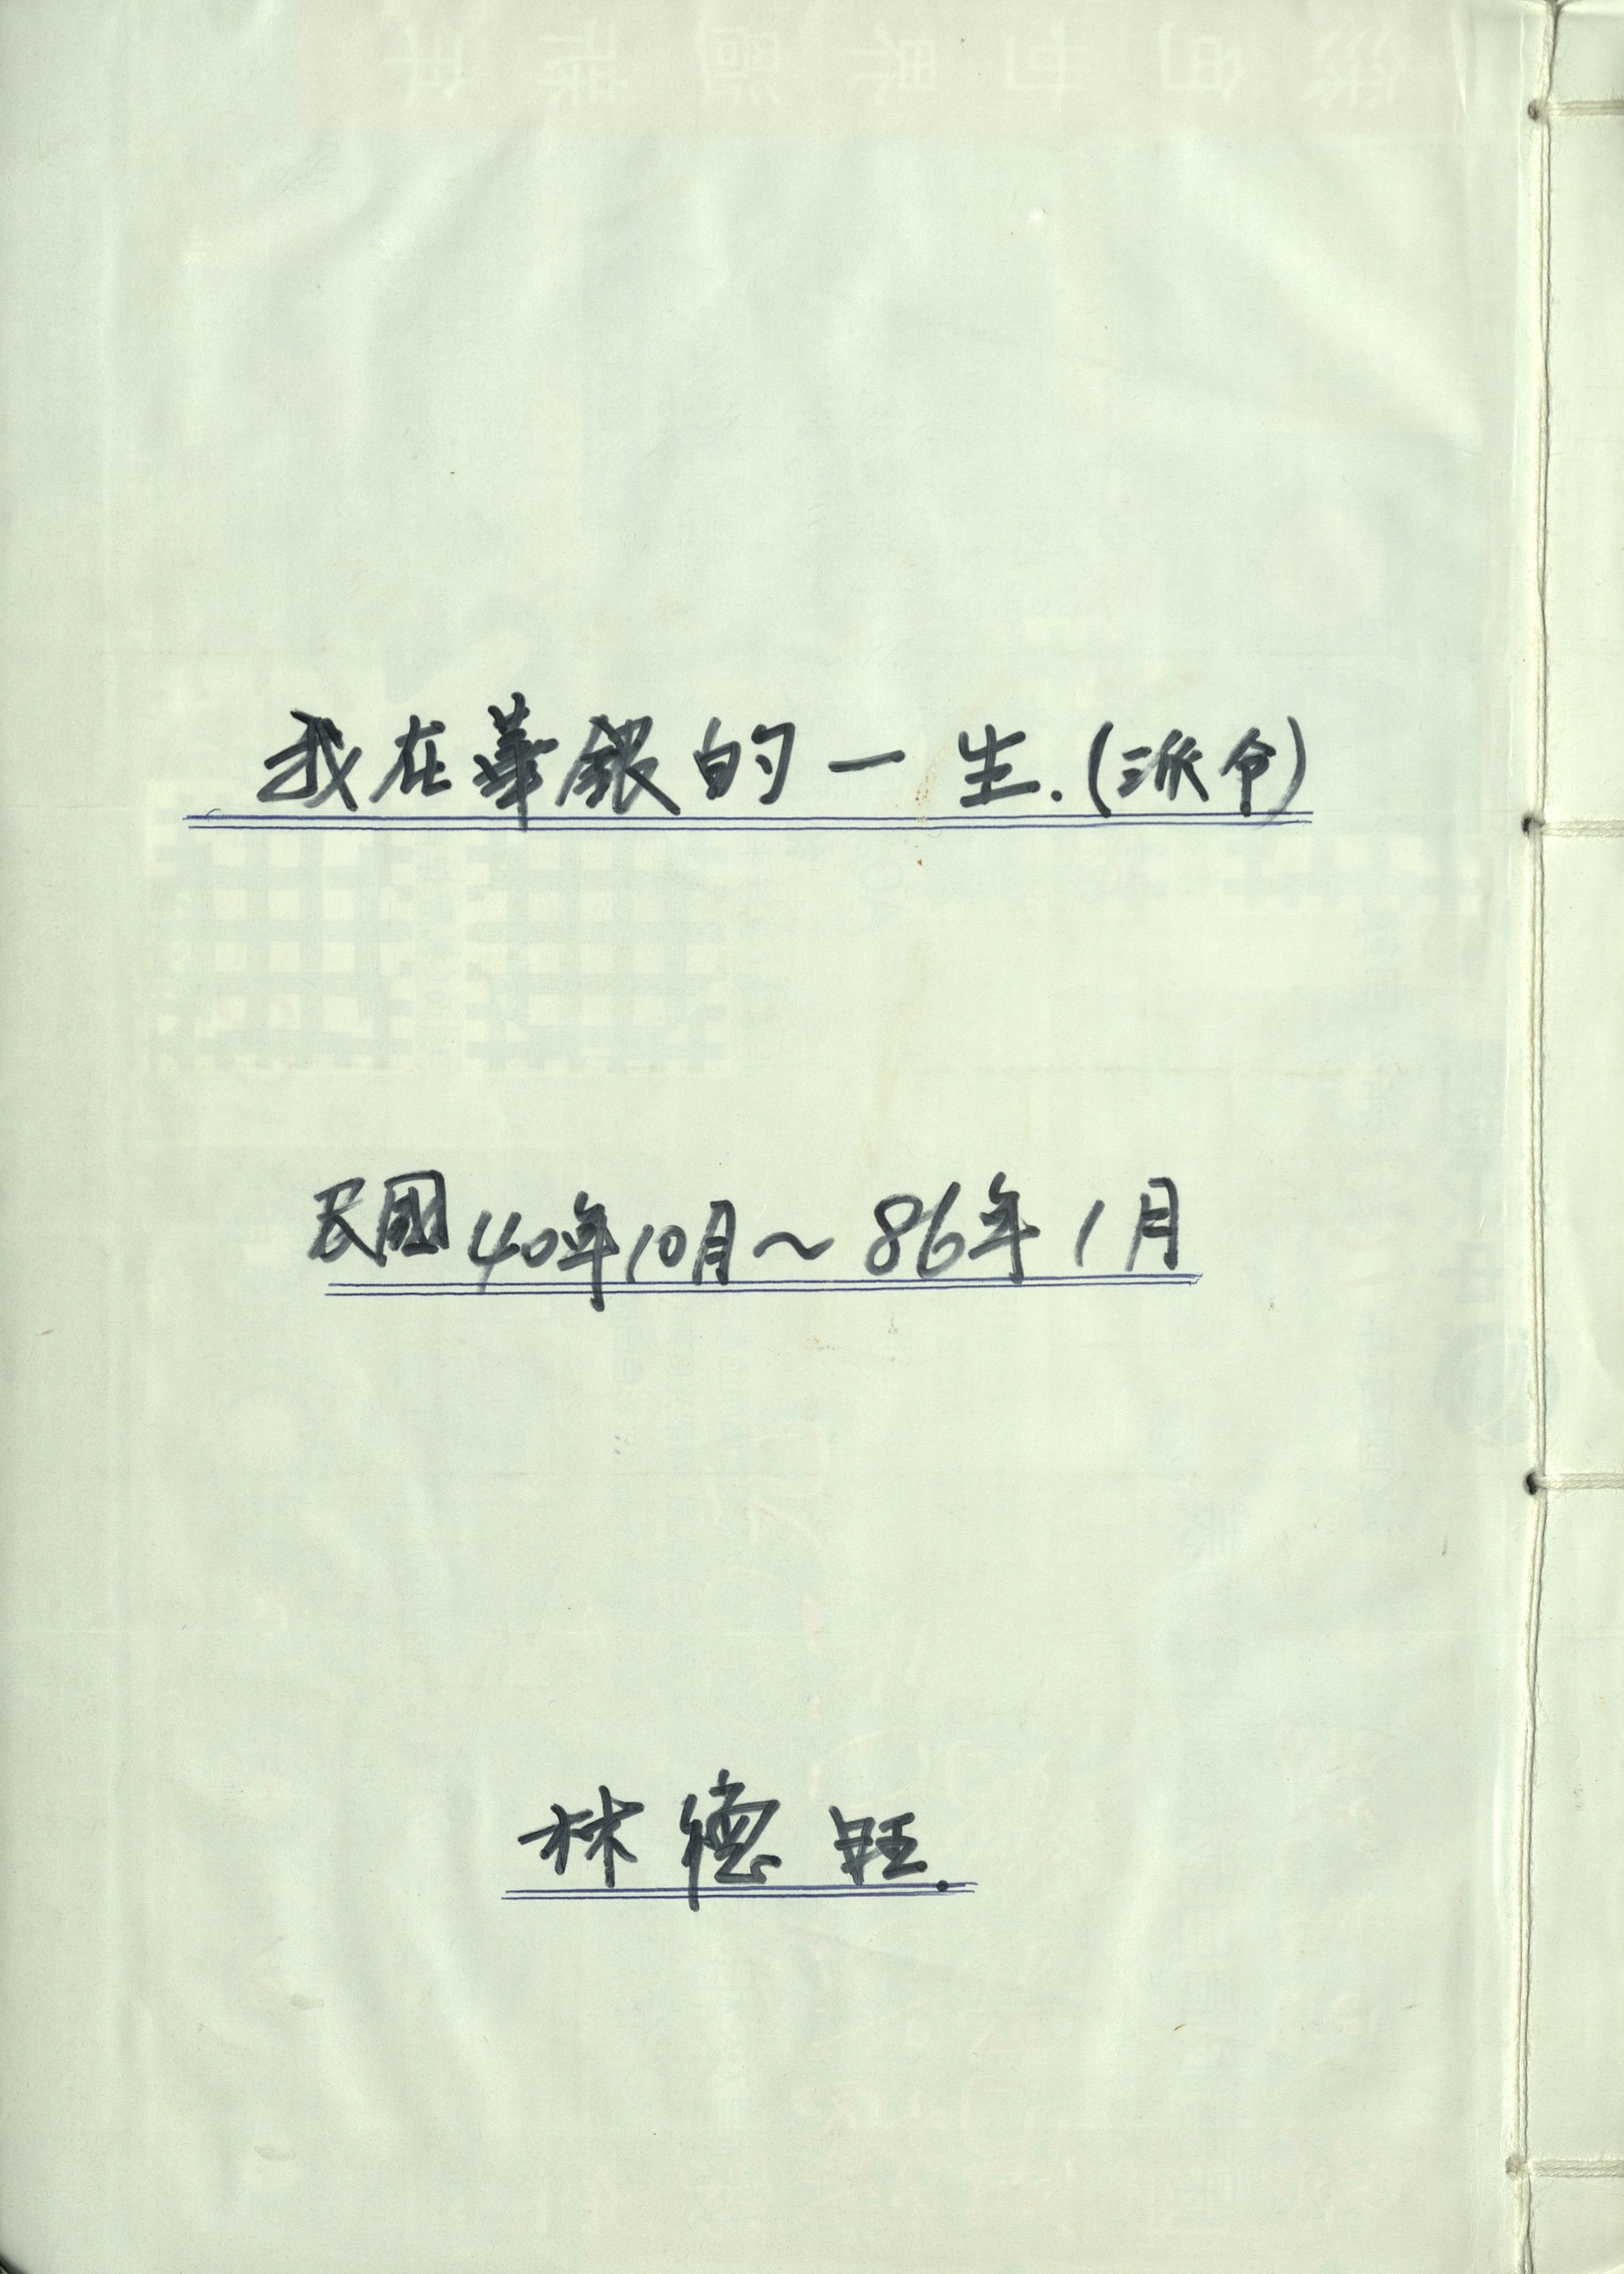 我在華銀的一生.(派令)
民國40年10月～86年1月
林德旺.